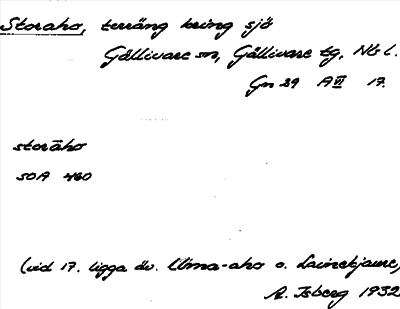 Storaho, terräng kring sjö
Gällivare sn, Gällivare tg, Nb l.
Gn 29 A VII 17.
storāho
SOA 460
(vid 17. ligga äv. Uma-aho o. Lainekjaure)
A. Isberg 1932